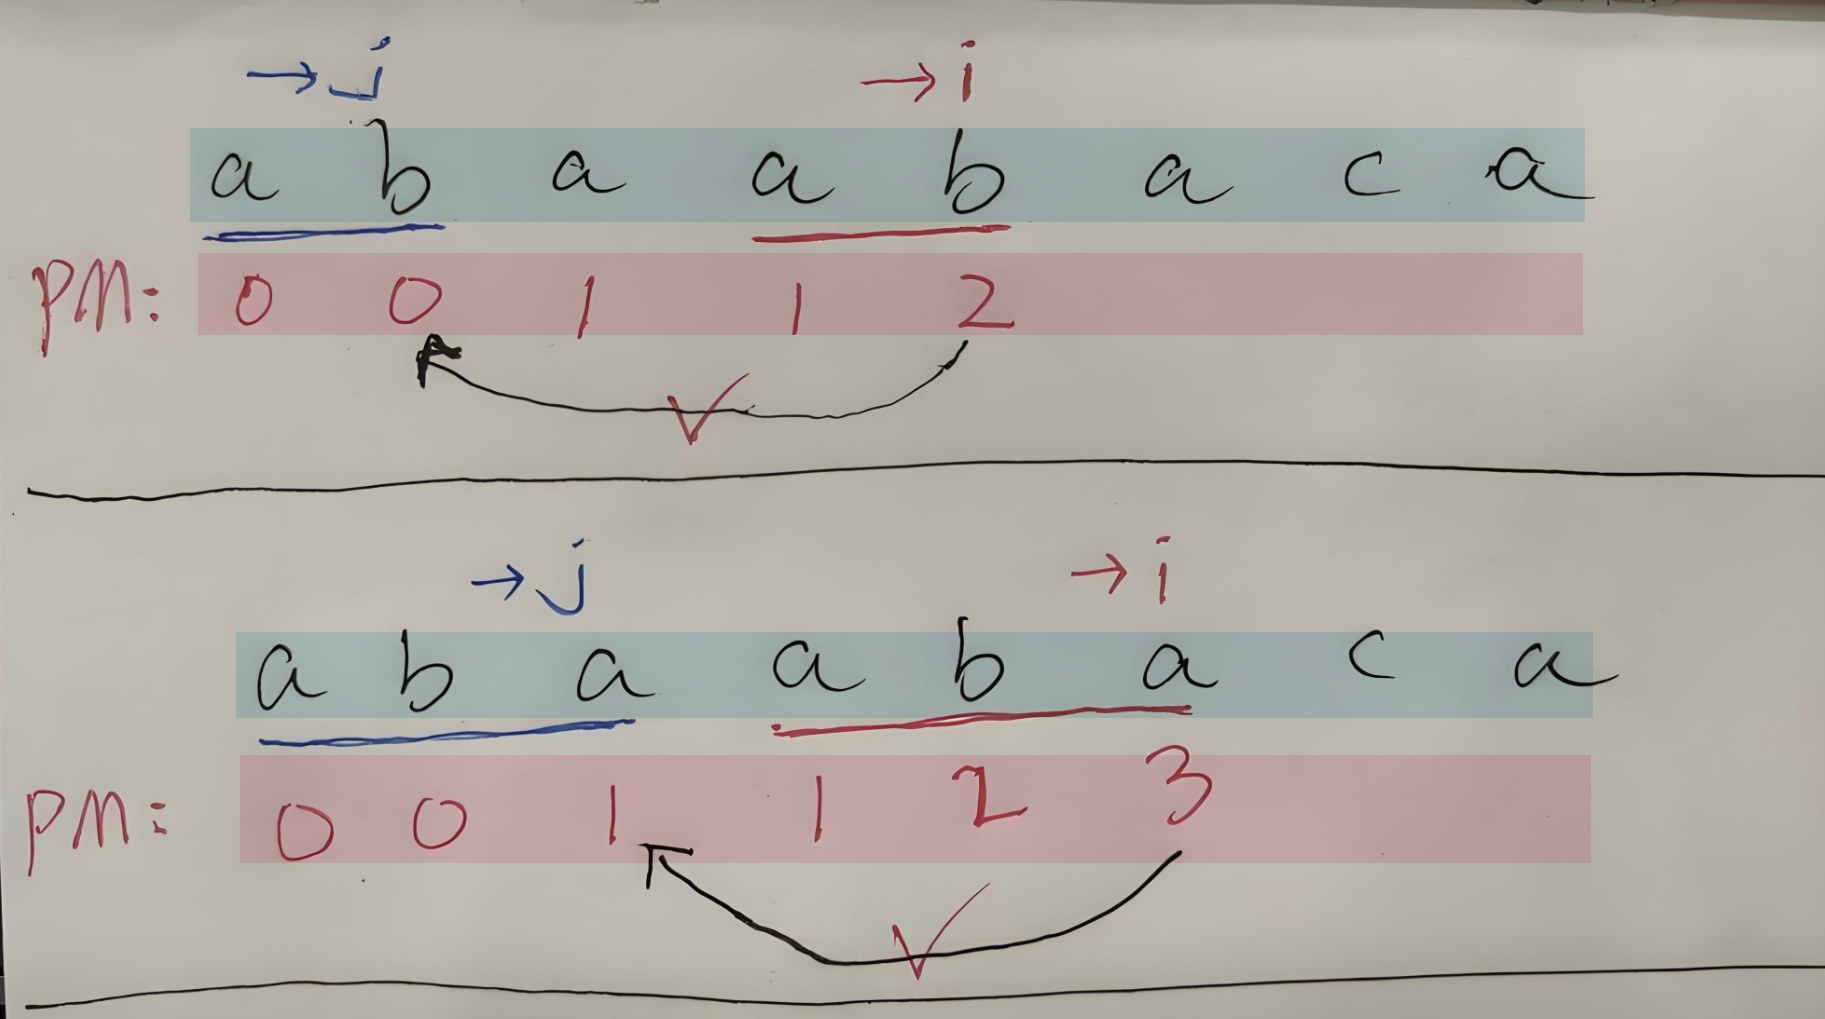 → j → i
a b a a b a c a
PM: 0 0 1 1 2
→ j → i
a b a a b a c a
PM: 0 0 1 1 2 3